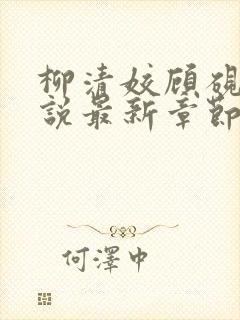 柳清姣顾砚
說最新章節
何澤中